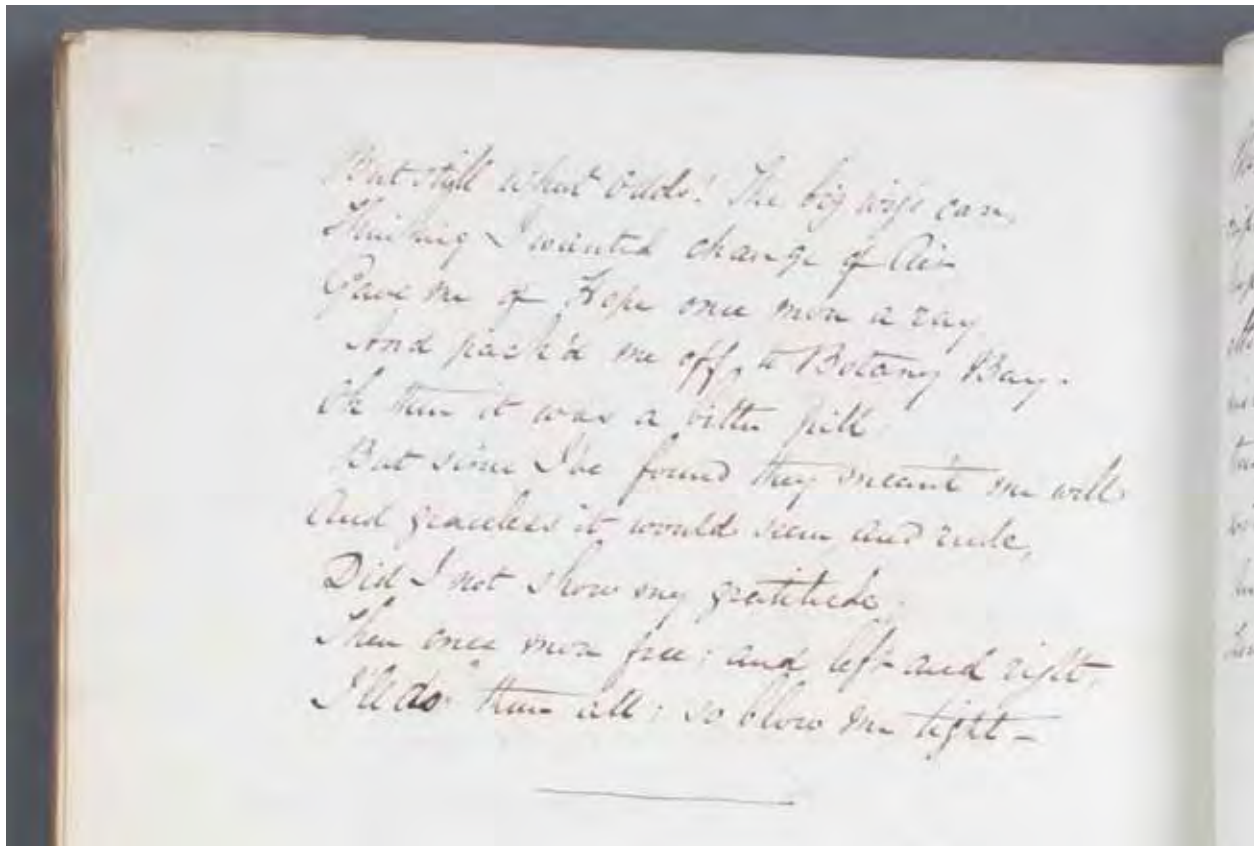 But still what odds! The big wigs can,
Thinking I wanted change of Air
Gave me of Hope once more a ray
And pack'd me off, to Botany Bay.
Oh then it was a bitter pill
But since I've found they meant me well
And graceless it would seem and rude,
Did I not show my gratitude;
Then once more free; and left and right,
I'll do them all; so blow me tight –